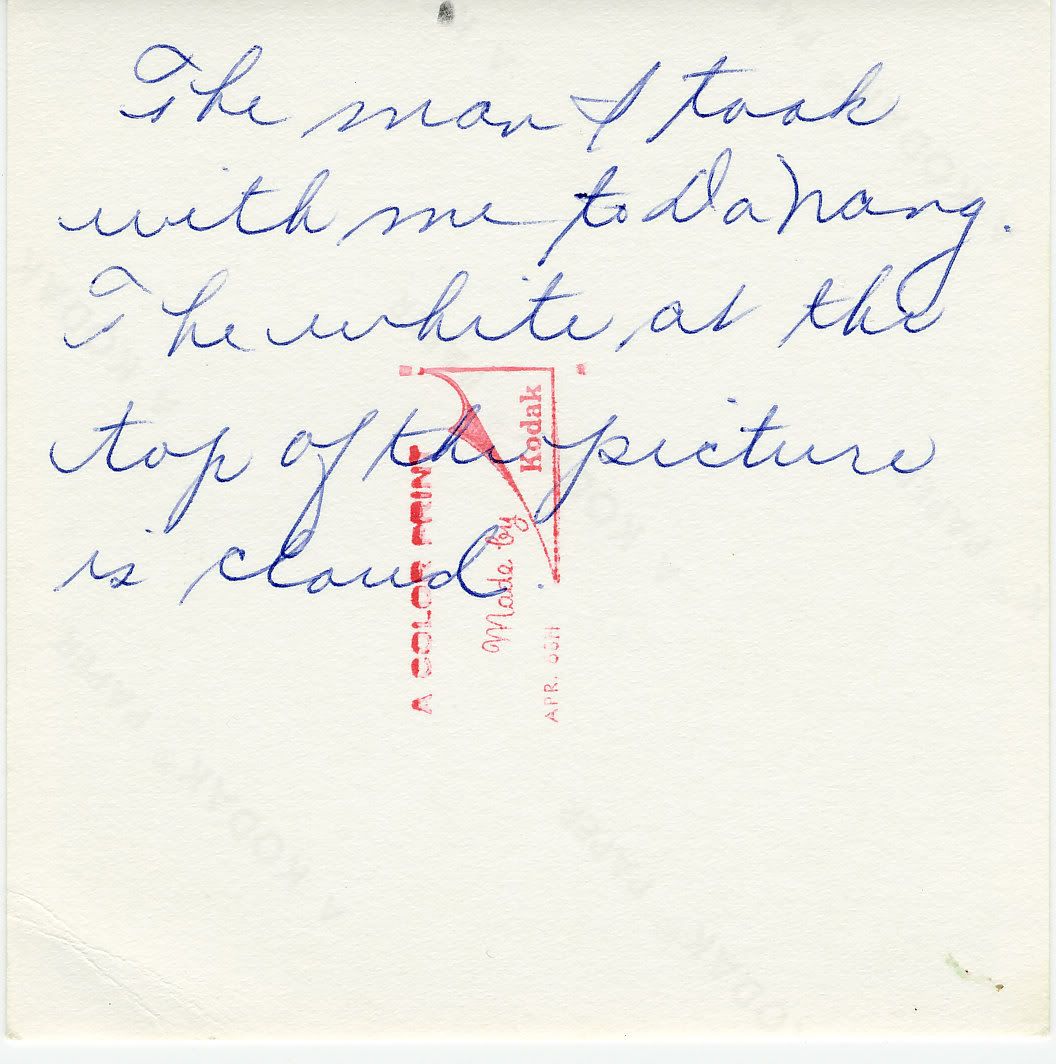 The man I took
with me to Da Nang.
The white, at the
top of the picture
is cloud.
A COLOR PRINT
Made by Kodak
APR.
A KODAK PAPER